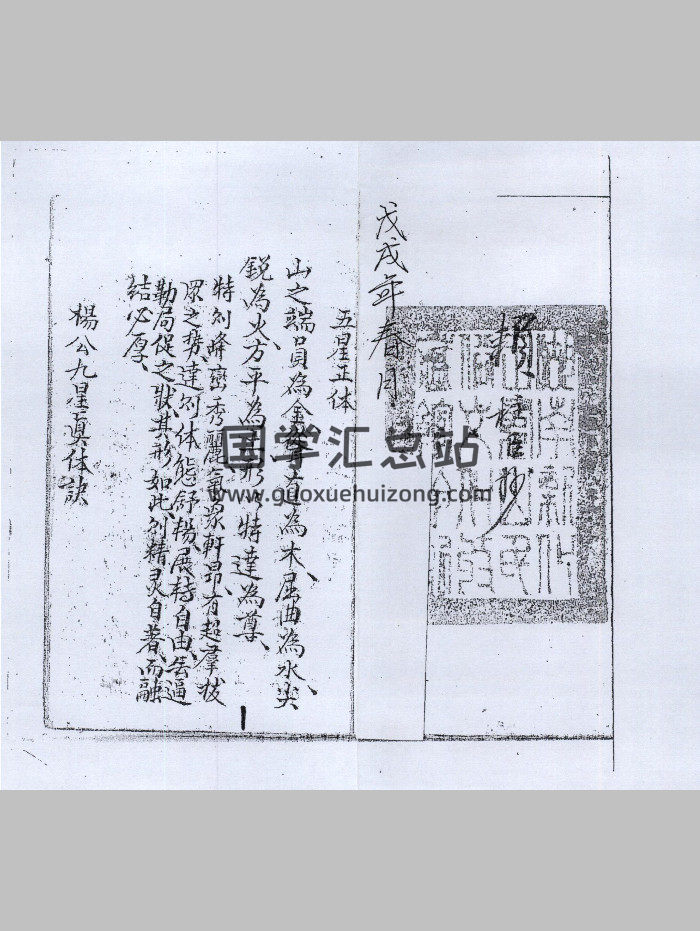 戊戌年春月
五星正体
山之端員為金、聳直為木、屈曲為水、尖
鋭為火、方平為土、形以特達為尊、
特則峰巒秀麗、氣象軒昂、有超羣拔
眾之势、達則体態舒楊、展持自由、無逼
勒局促之狀、其形如此、則精灵自著、而融
結必厚、
楊公九星真体訣
国学汇总站
www.guoxuehuizong.com